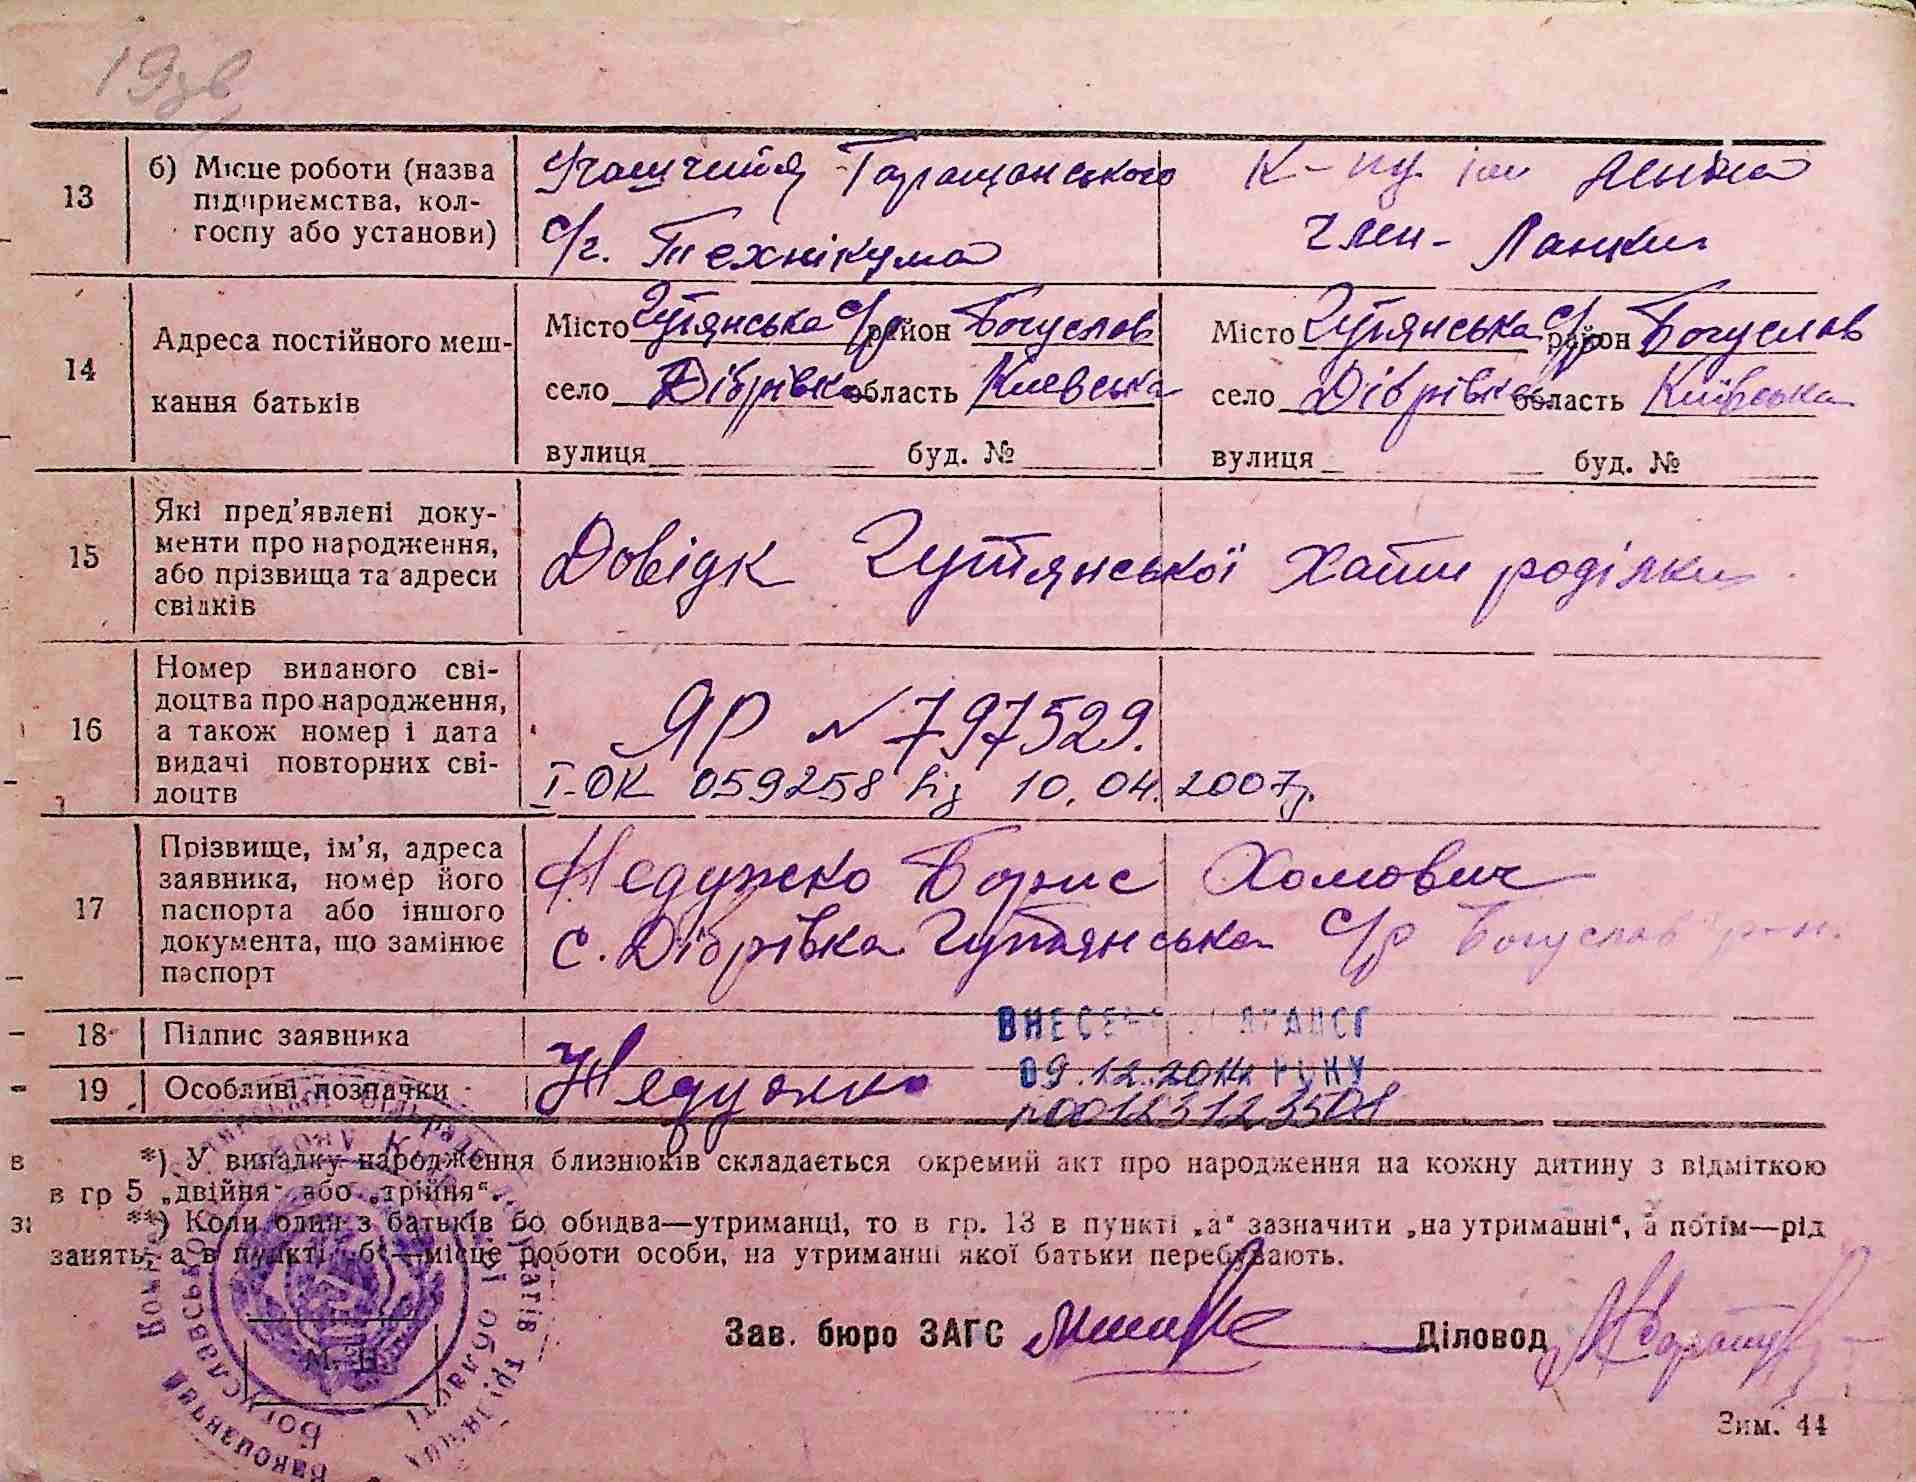 19зв
13 б) Місце роботи (назва підприємства, колгоспу або установи)
Учащийся Таращанського
с/г. Технікума
К-пу ім Леніна
член - Ланки
14 Адреса постійного меш-
кання батьків
Місто Гутянська с/р район Богуслав
село Дібрівка область Киевська
вулиця буд. №
Місто Гутянська с/р район Богуслав
село Дібрівка область Київська
вулиця буд. №
15 Які пред'явлені доку-
менти про народження,
або прізвища та адреси
свідків
Довідк Гутянської Хати роділки
16 Номер виданого сві-
доцтва про народження,
а також номер і дата
видачі повторних сві-
доцтв
ЯР № 797529.
І-ОК 059258 від 10.04.2007р.
17 Прізвище, ім'я, адреса
заявника, номер його
паспорта або іншого
документа, що замінює
паспорт
Недужко Борис Хомович
с. Дібрівка Гутянська с/р Богуслав р-н.
18 Підпис заявника
Недужко
19 Особливі позначки
ВНЕСЕНО ДРАЦСГ
09.12.2014 РОКУ
№00123123501
*) У випадку народження близнюків складається окремий акт про народження на кожну дитину з відміткою
в гр 5 „двійня" або „трійня".
**) Коли один з батьків бо обидва—утриманці, то в гр. 13 в пункті „а" зазначити „на утриманні", а потім—рід
занять, а в пункті „б"—місце роботи особи, на утриманні якої батьки перебувають.
М. П.
Зав. бюро ЗАГС Діловод
Зим. 44